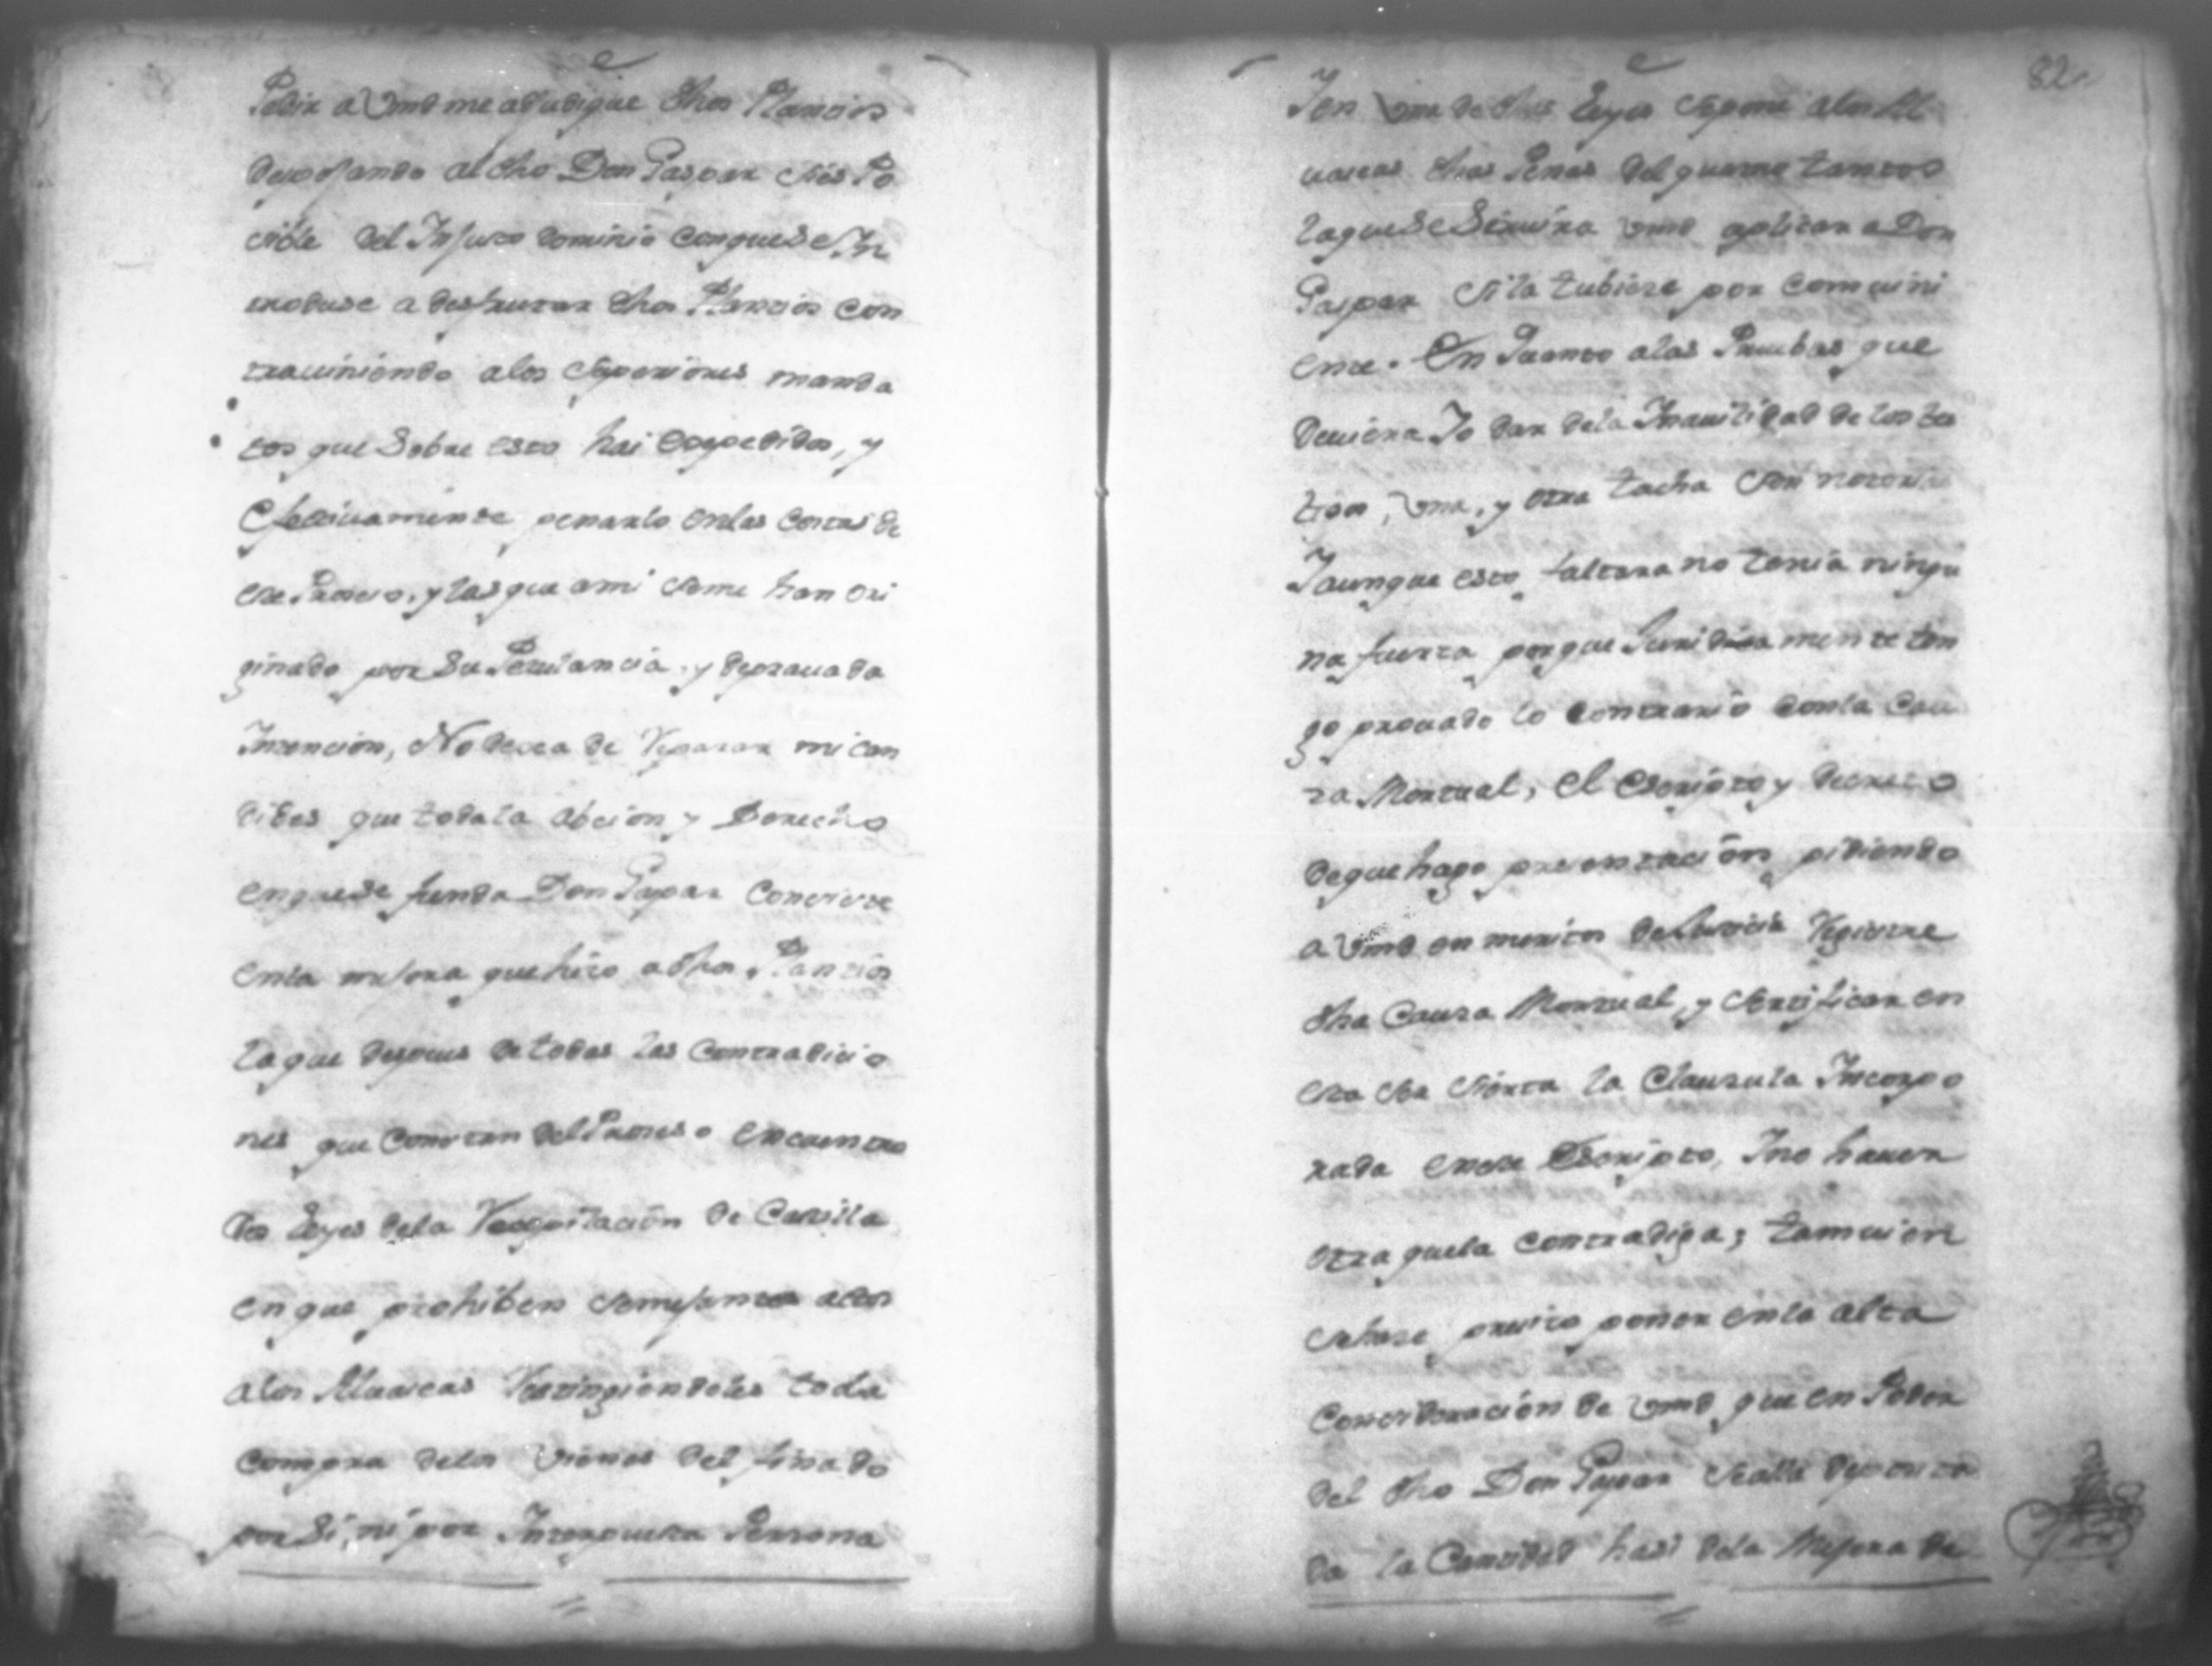 Pedir a Vmd me adjudique dhos Plancios
despojando al dho Don Gaspar
del Injusto dominio con que se In
troduse a desfrutar dhos Plancios con
traviniendo a los Superiores manda
tos que Sobre esto hai Expedidos, y
Efectivamente penarlo en las Costas de
este Proceso, y las que a mi se me han ori
ginado por Su Petulancia, y depravada
Intencion, No dexa de Reparar mi can
dides que toda la abcion y Derecho
en que se funda Don Gaspar Conciste
en la mejora que hizo a dhos Plancios
la que despues de todas las Contradicio
nes que Constan del Proceso encuentro
dos Leyes de la Recopilacion de Castilla
en que prohiben semejantes actos
a los Alvaceas Restringiendoles toda
compra de los vienes del finado
por Si, ni por Interpuesta Persona
82
I en una de dhas Leyes expone a los Al
vaceas dhas Penas del quarto tantos
la que se Servira Vmd aplicar a Don
Gaspar si la tubiere por Comvini
ente. En Quanto a las Pruebas que
deviera Io dar de la Inavilidad de los tes
tigos, una, y otra tacha son notorias
I aunque esto faltara no tenia ningu
na fuerza porque Juridicamente ten
go provado lo contrario con la Cau
za Mortual, el Escripto y decreto
de que hago presentacion pidiendo
a Vmd en meritos de Justicia Registre
dha Cauza Mortual, y Sertificar en
esta ser sierta la Clauzula Incorpo
rada en este Escripto, I no haver
otra que la contradiga; tamvien
se hase presiso poner en la alta
Concideracion de Vmd que en Poder
del dho Don Gaspar se alla deposita
da la Cantidad hasi de la Mejora de